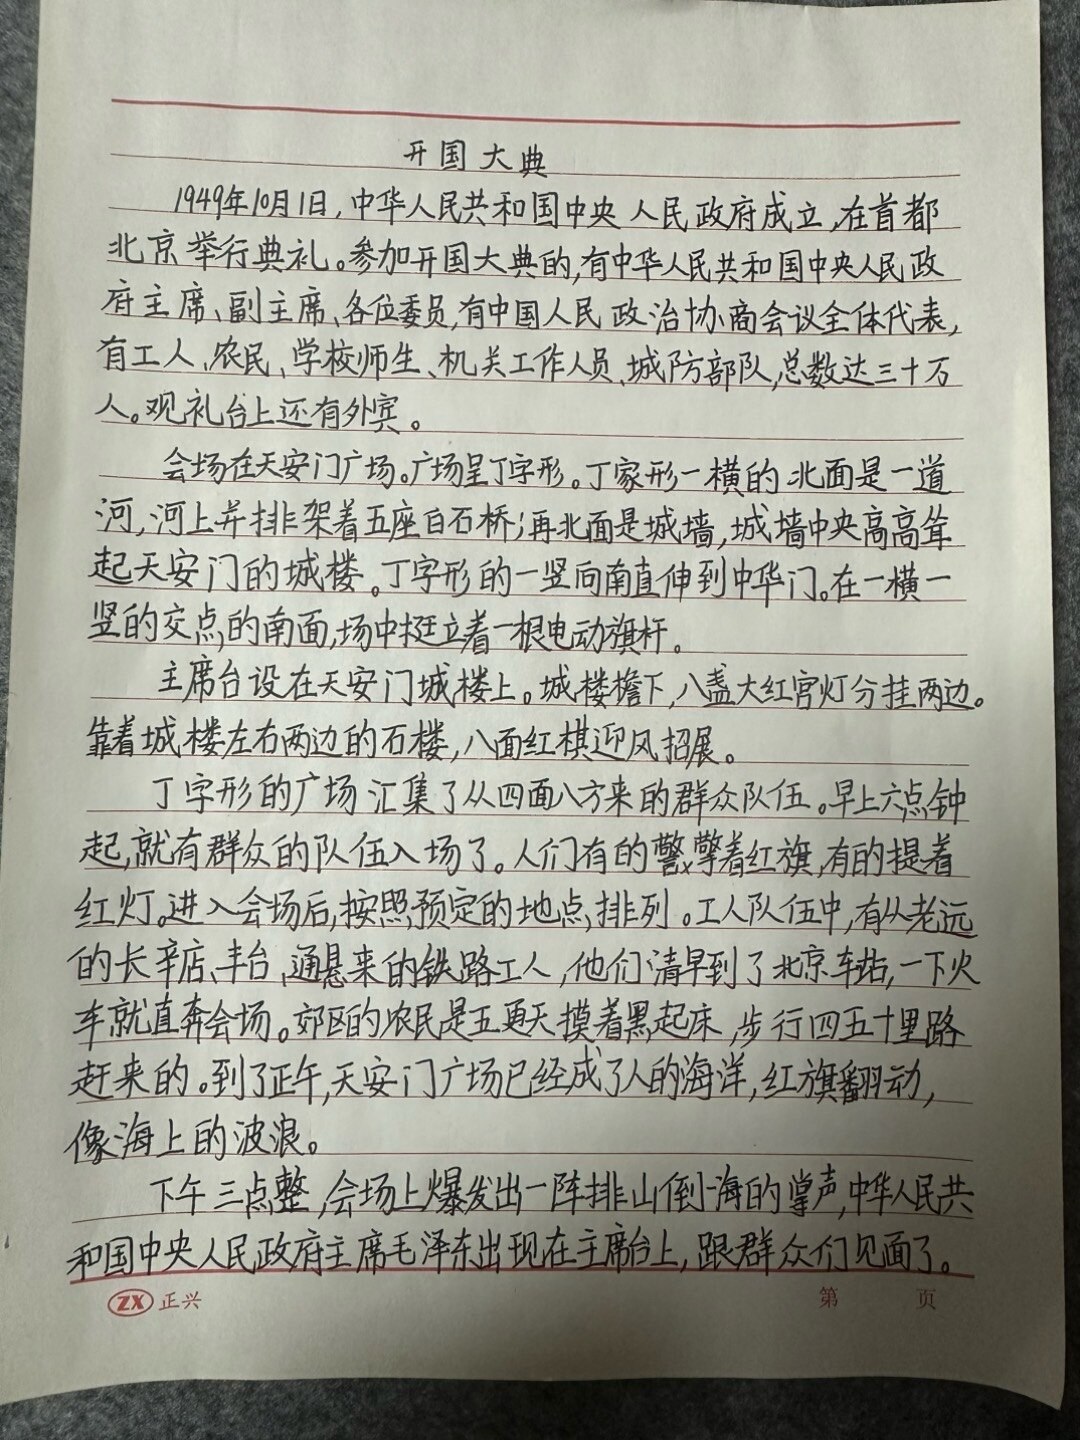 开国大典
1949年10月1日,中华人民共和国中央人民政府成立,在首都
北京举行典礼。参加开国大典的,有中华人民共和国中央人民政
府主席、副主席、各位委员,有中国人民政治协商会议全体代表,
有工人、农民、学校师生、机关工作人员、城防部队,总数达三十万
人。观礼台上还有外宾。
会场在天安门广场。广场呈丁字形。丁家形一横的北面是一道
河,河上并排架着五座白石桥;再北面是城墙,城墙中央高高耸
起天安门的城楼。丁字形的一竖向南直伸到中华门。在一横一
竖的交点的南面,场中挺立着一根电动旗杆。
主席台设在天安门城楼上。城楼檐下,八盏大红宫灯分挂两边。
靠着城楼左右两边的石楼,八面红棋迎风招展。
丁字形的广场汇集了从四面八方来的群众队伍。早上六点钟
起,就有群众的队伍入场了。人们有的擎着红旗,有的提着
红灯。进入会场后,按照预定的地点排列。工人队伍中,有从老远
的长辛店、丰台、通县来的铁路工人,他们清早到了北京车站,一下火
车就直奔会场。郊区的农民是五更天摸着黑起床,步行四五十里路
赶来的。到了正午,天安门广场已经成了人的海洋,红旗翻动,
像海上的波浪。
下午三点整,会场上爆发出一阵排山倒海的掌声,中华人民共
和国中央人民政府主席毛泽东出现在主席台上,跟群众们见面了。
ZX 正兴 第 页